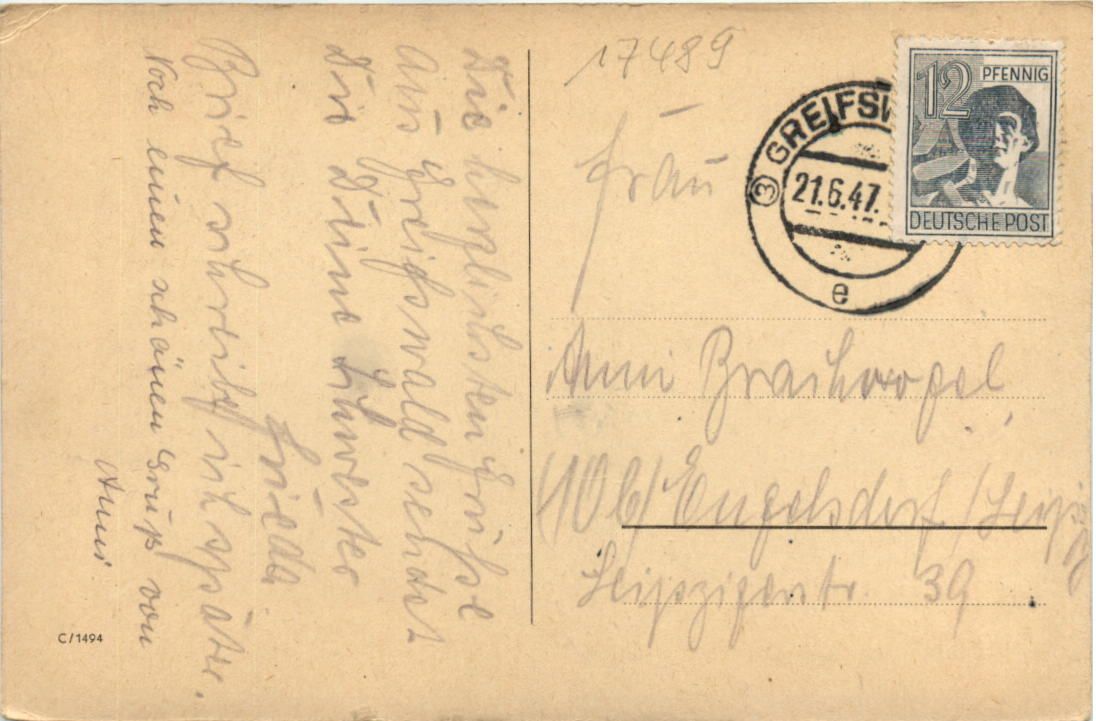 Die herzlichsten Grüße
aus Greifswald sendet
Dir Deine Schwester
Frieda
Brief schreibe ich später.
Noch einen schönen Gruß von
Anni
C/1494
17489
12 PFENNIG
DEUTSCHE POST
GREIFSW
21.6.47.
e
Frau
Anni
(10b) Engelsdorf / Leipzig
Leipzigerstr. 39